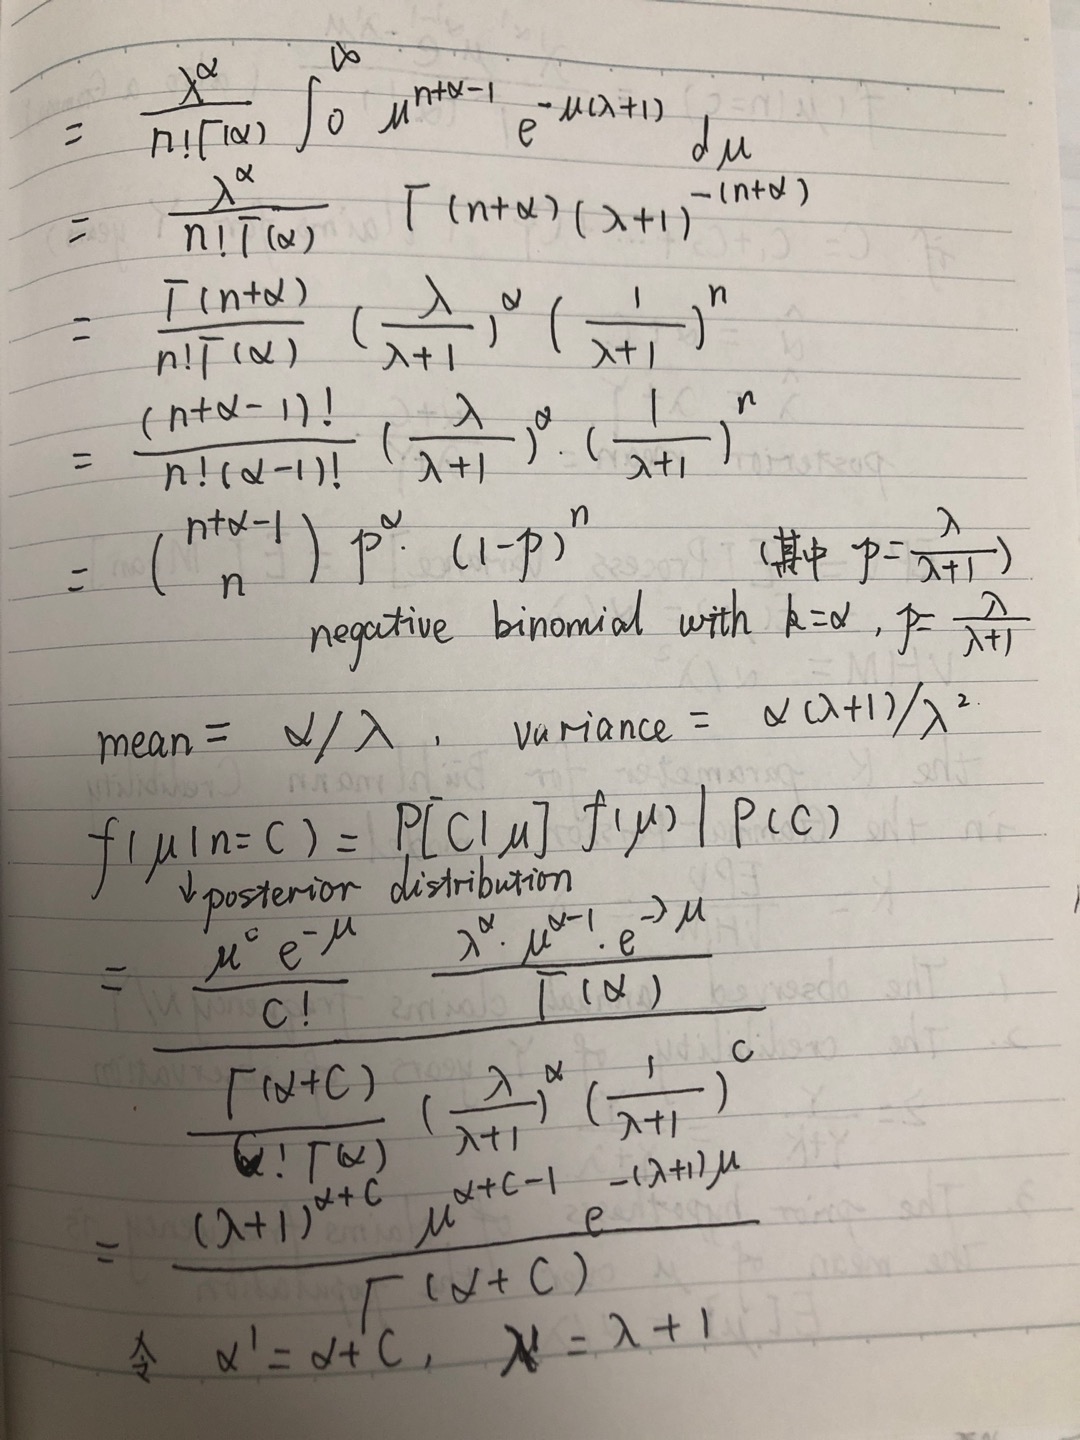 = λ^α / n!Γ(α) ∫₀^∞ μ^(n+α-1) e^(-μ(λ+1)) dμ
= λ^α / n!Γ(α) Γ(n+α)(λ+1)^(-(n+α))
= Γ(n+α) / n!Γ(α) (λ/(λ+1))^α (1/(λ+1))^n
= (n+α-1)! / n!(α-1)! (λ/(λ+1))^α · (1/(λ+1))^n
= (n+α-1 n) p^α · (1-p)^n (其中 p = λ/(λ+1))
negative binomial with k=α, p= λ/(λ+1)
mean = α/λ , variance = α(λ+1)/λ²
f(μ|n=C) = P[C|μ] f(μ) | P(C)
↓ posterior distribution
= μ^c e^(-μ) / C! λ^α · μ^(α-1) · e^(-λμ) / Γ(α)
Γ(α+C) / C! Γ(α) (λ/(λ+1))^α (1/(λ+1))^C
= (λ+1)^(α+C) μ^(α+C-1) e^(-(λ+1)μ) / Γ(α+C)
令 α' = α+C, λ' = λ+1